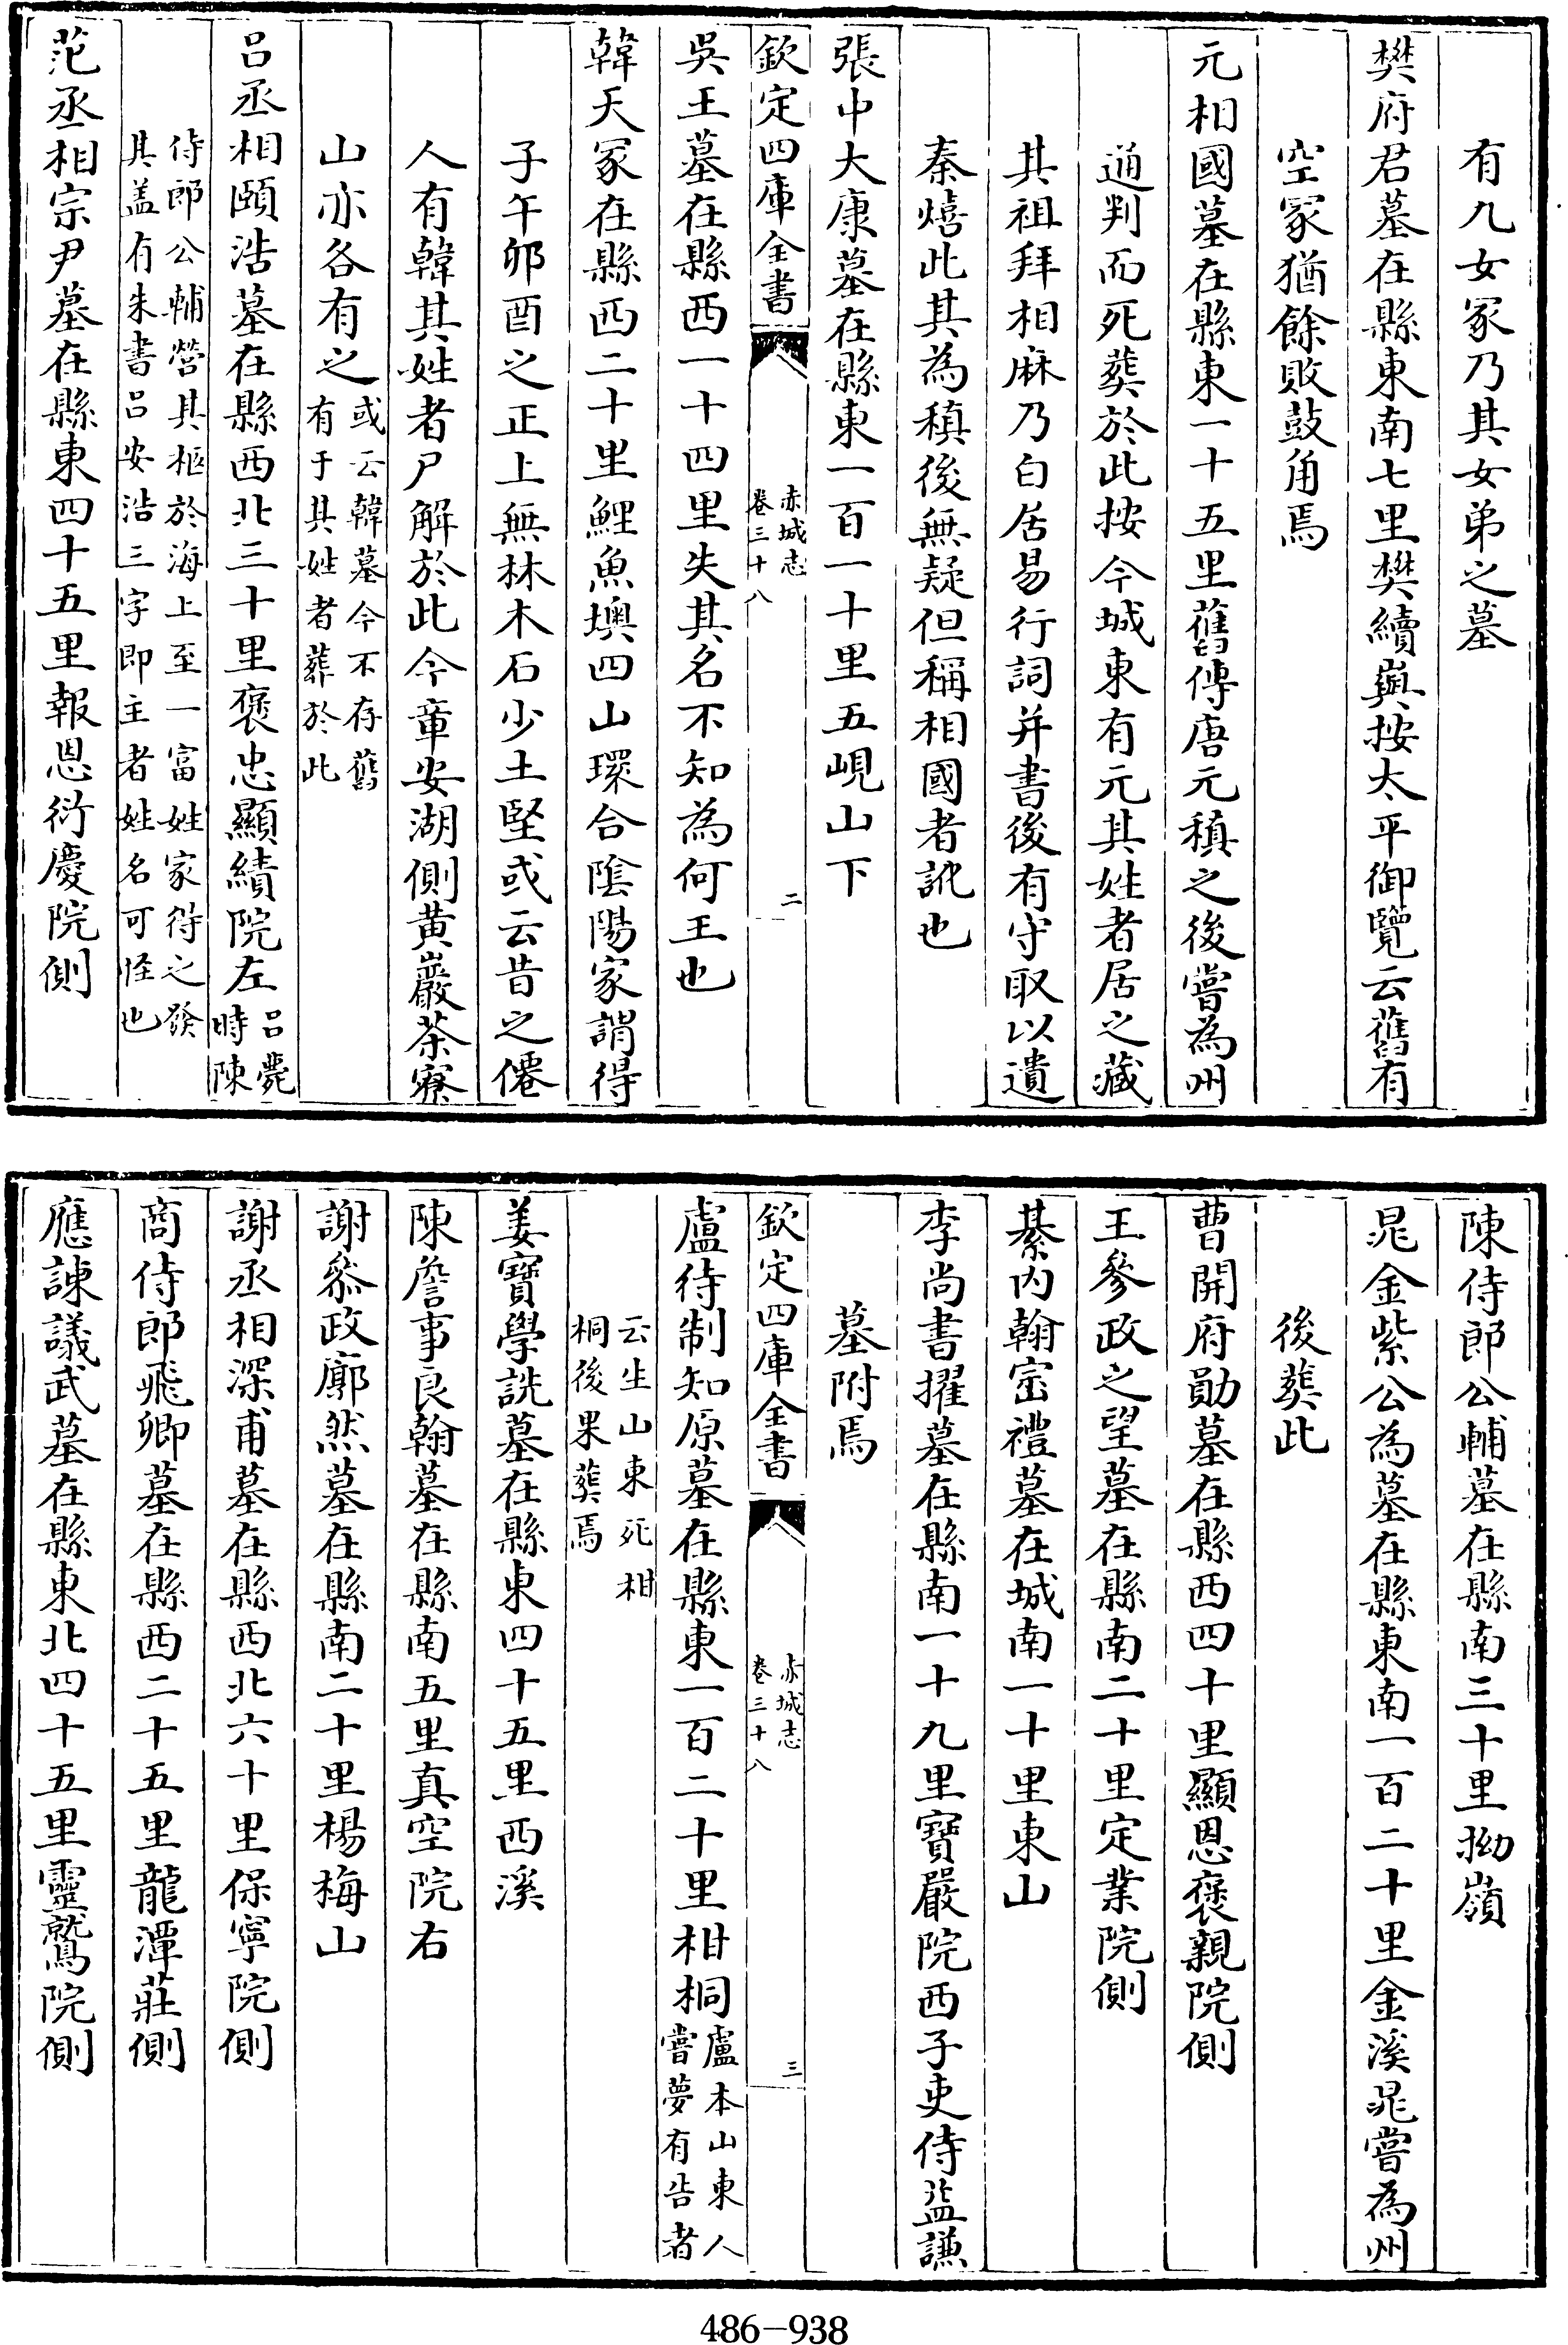 有九女冢乃其女弟之墓
樊府君墓在縣東南七里樊續與按太平御覽云舊有
空冢猶餘敗鼓角焉
元相國墓在縣東一十五里舊傳唐元稹之後嘗為州
通判而死葬於此按今城東有元其姓者居之藏
其祖拜相麻乃白居易行詞并書後有守取以遺
秦熺此其為稹後無疑但稱相國者訛也
張中大康墓在縣東一百一十里五峴山下
欽定四庫全書
赤城志
卷三十八
二
吳王墓在縣西一十四里失其名不知為何王也
韓天冢在縣西二十里鯉魚墺四山環合陰陽家謂得
子午卯酉之正上無林木石少土堅或云昔之僊
人有韓其姓者尸解於此今章安湖側黄巖茶寮
山亦各有之或云韓墓今不存舊
有于其姓者葬於此
呂丞相頤浩墓在縣西北三十里褒忠顯績院左呂薨
時陳
侍郎公輔營其柩於海上至一富姓家得之發
其盖有朱書呂安浩三字即主者姓名可怪也
范丞相宗尹墓在縣東四十五里報恩衍慶院側
陳侍郎公輔墓在縣南三十里拗嶺
晁金紫公為墓在縣東南一百二十里金溪晁嘗為州
後葬此
曹開府勛墓在縣西四十里顯恩褒親院側
王參政之望墓在縣南二十里定業院側
綦内翰崈禮墓在城南一十里東山
李尚書擢墓在縣南一十九里寶嚴院西子吏侍益謙
墓附焉
欽定四庫全書
赤城志
卷三十八
三
盧待制知原墓在縣東一百二十里柑桐盧本山東人
嘗夢有告者
云生山東死柑
桐後果葬焉
姜寶學詵墓在縣東四十五里西溪
陳詹事良翰墓在縣南五里真空院右
謝叅政廓然墓在縣南二十里楊梅山
謝丞相深甫墓在縣西北六十里保寧院側
商侍郎飛卿墓在縣西二十五里龍潭莊側
應諫議武墓在縣東北四十五里靈鷲院側
486-938